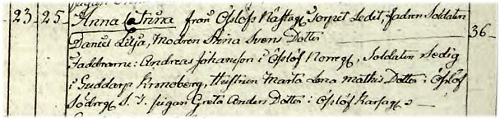 23 25 Anna Catrina från Öslöf Näftag Torpet Ledet, fadren Soldaten
Daniel Lilja, Modren Stina Svens Dotter 36
Faddrarne: Andreas Johansson i Öslöf Norreg, Soldaten Ledig
i Guddarp Kronoberg, Hustrun Marta Lena Mathis Dotter i Öslöf
Södreg. Pigan Greta Anders Dotter i Öslöf